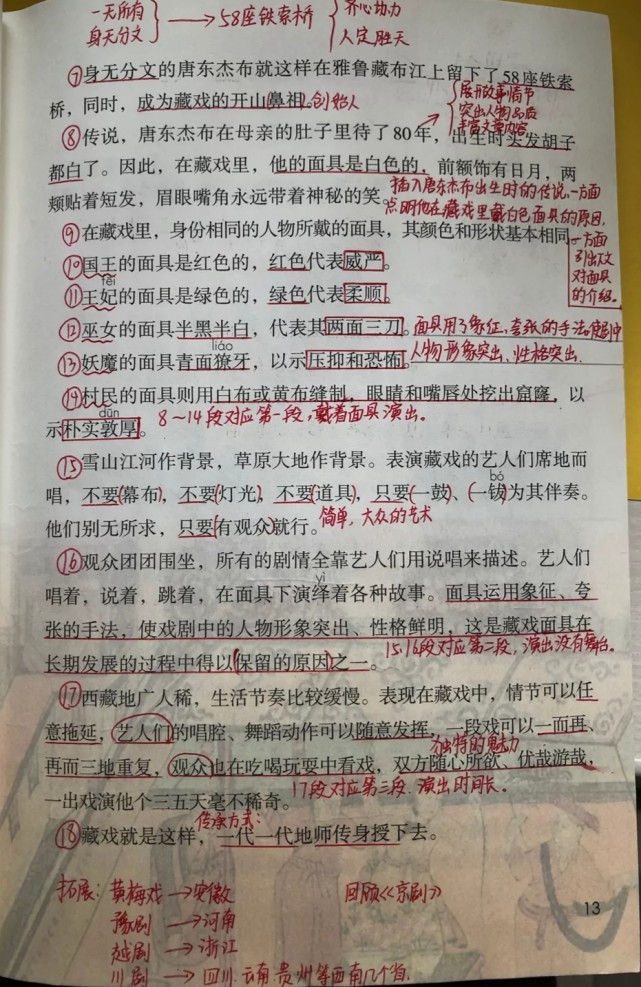 一无所有
身无分文
→58座铁索桥
齐心协力
人定胜天
⑦身无分文的唐东杰布就这样在雅鲁藏布江上留下了58座铁索
桥,同时,成为藏戏的开山鼻祖。创始人
展开故事情节
突出人物品质
丰富文章内容
⑧传说,唐东杰布在母亲的肚子里待了80年,出生时头发胡子
都白了。因此,在藏戏里,他的面具是白色的,前额饰有日月,两
颊贴着短发,眉眼嘴角永远带着神秘的笑。
插入唐东杰布出生时的传说,一方面
点明他在藏戏里戴白色面具的原因,
⑨在藏戏里,身份相同的人物所戴的面具,其颜色和形状基本相同。
一方面
引出下文
对面具
的介绍。
⑩国王的面具是红色的,红色代表威严。
fēi
⑪王妃的面具是绿色的,绿色代表柔顺。
⑫巫女的面具半黑半白,代表其两面三刀。面具用了象征、夸张的手法,使剧中
liáo
⑬妖魔的面具青面獠牙,以示压抑和恐怖。人物形象突出、性格突出.
⑭村民的面具则用白布或黄布缝制,眼睛和嘴唇处挖出窟窿,以
dūn
示朴实敦厚。8~14段对应第一段,戴着面具演出。
⑮雪山江河作背景,草原大地作背景。表演藏戏的艺人们席地而
bó
唱,不要(幕布),不要(灯光),不要(道具),只要(一鼓)、(一钹)为其伴奏。
他们别无所求,只要(有观众)就行。简单,大众的艺术
⑯观众团团围坐,所有的剧情全靠艺人们用说唱来描述。艺人们
yì
唱着,说着,跳着,在面具下演绎着各种故事。面具运用象征、夸
张的手法,使戏剧中的人物形象突出、性格鲜明,这是藏戏面具在
长期发展的过程中得以(保留的原因)之一。
15.16段对应第二段,演出没有舞台。
⑰西藏地广人稀,生活节奏比较缓慢。表现在藏戏中,情节可以任
意拖延,艺人们的唱腔、舞蹈动作可以随意发挥,一段戏可以一而再、
独特的魅力
再而三地重复,观众也在吃喝玩耍中看戏,双方随心所欲、优哉游哉,
一出戏演他个三五天毫不稀奇。17段对应第三段.演出时间长。
传承方式:
⑱藏戏就是这样,一代一代地师传身授下去。
拓展:黄梅戏→安徽
回顾《京剧》
豫剧→河南
越剧→浙江
川剧→四川.云南.贵州等西南几个省.
13